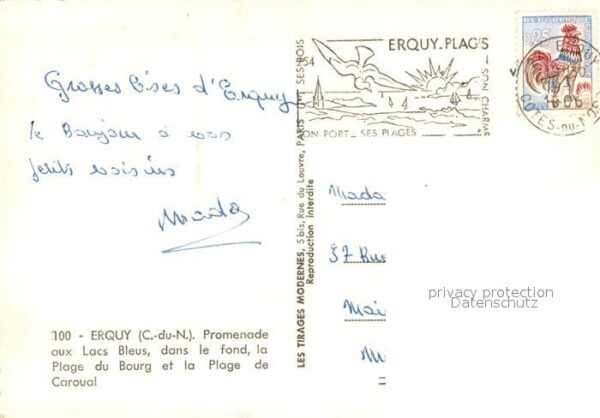 Grosses Bises d'Erquy
le Bonjour à vos
petits voisins
100 - ERQUY (C.-du-N.). Promenade
aux Lacs Bleus, dans le fond, la
Plage du Bourg et la Plage de
Caroual
LES TIRAGES MODERNES, 5 bis, Rue du Louvre, PARIS (1er)
Reproduction interdite
ERQUY-PLAGES
SES BOIS
SON CHARME
SON PORT - SES PLAGES
0,25
ERQUY
COTES-DU-NORD
Mada
57 Rue
Mai
M
privacy protection
Datenschutz